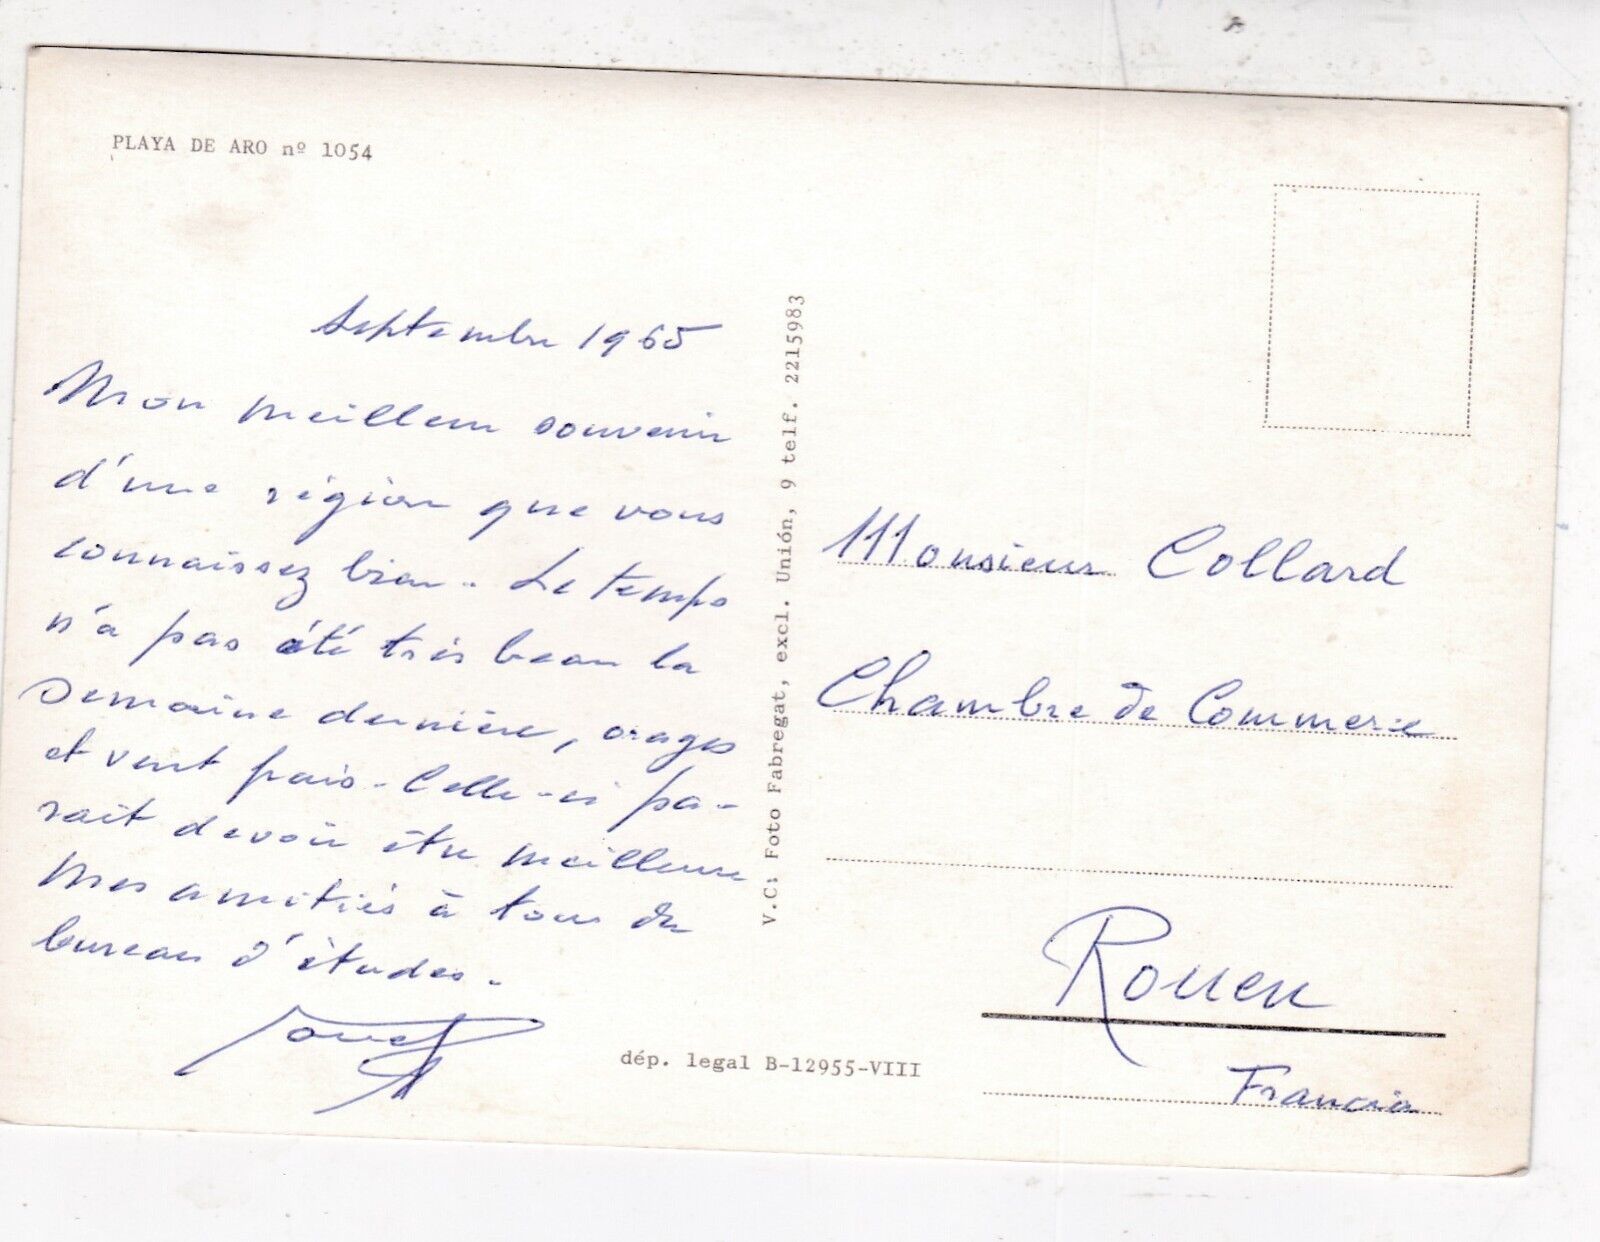 PLAYA DE ARO nº 1054
Septembre 1965
Mon meilleur souvenir
d'une région que vous
connaissez bien. Le temps
n'a pas été très beau la
semaine dernière, orages
et vent frais. Celle-ci pa-
rait devoir être meilleure
Mes amitiés à tous du
bureau d'études.
V.C: Foto Fabregat, excl. Unión, 9 telf. 2215983
dép. legal B-12955-VIII
Monsieur Collard
Chambre de Commerce
Rouen
Francia